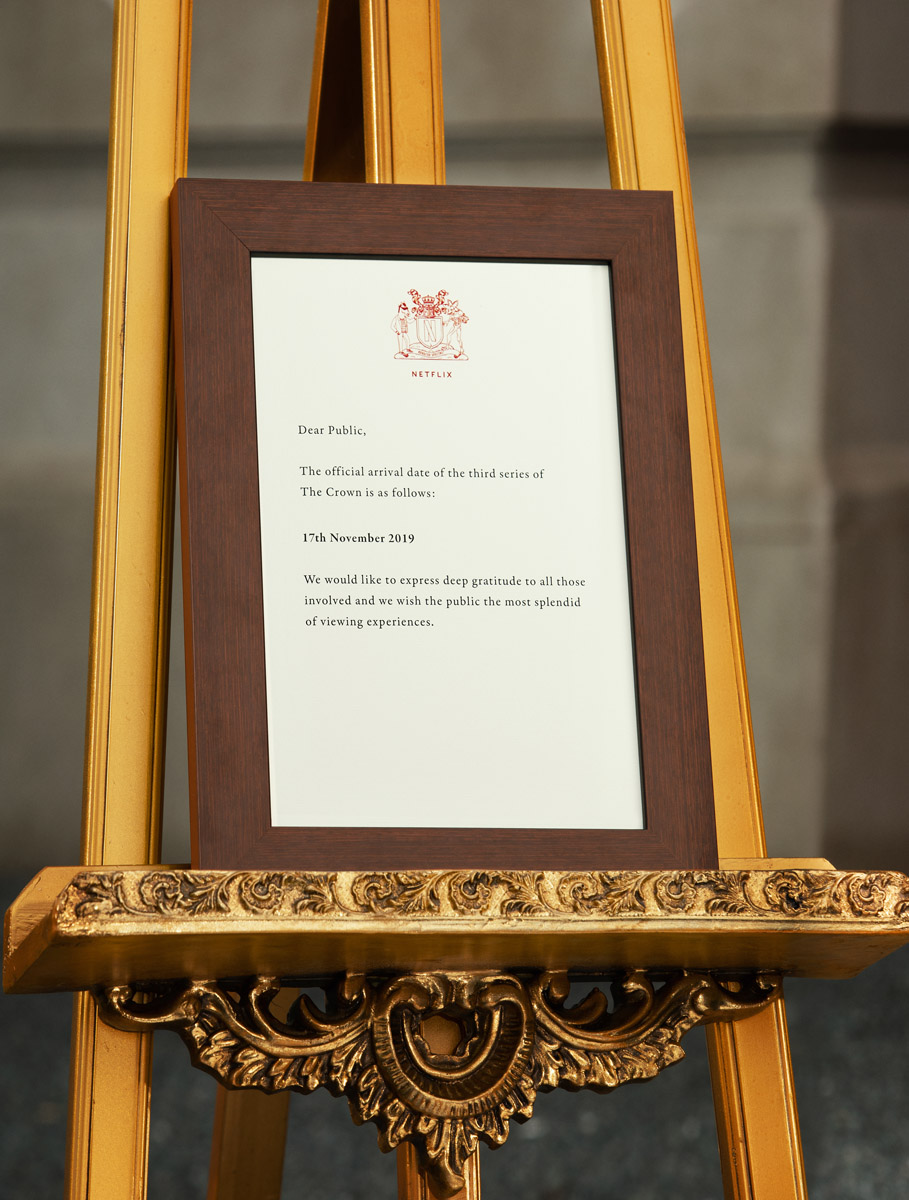 N
NETFLIX
Dear Public,
The official arrival date of the third series of
The Crown is as follows:
17th November 2019
We would like to express deep gratitude to all those
involved and we wish the public the most splendid
of viewing experiences.